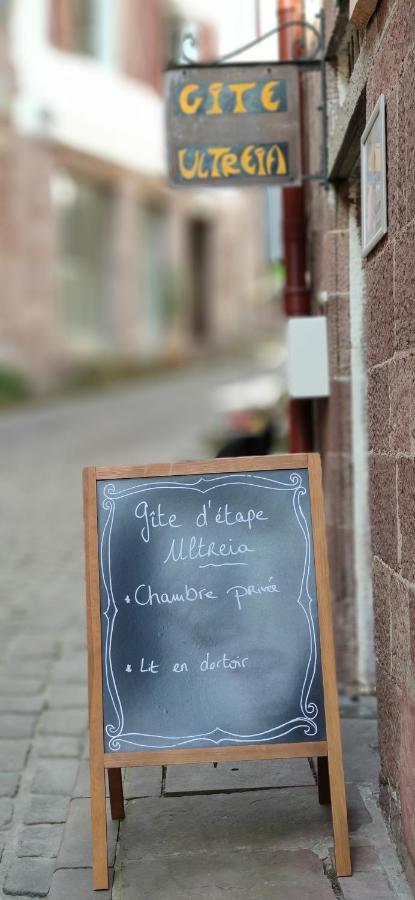 GITE
ULTREIA
Gîte d'étape
Ultreia
* Chambre privée
* Lit en dortoir